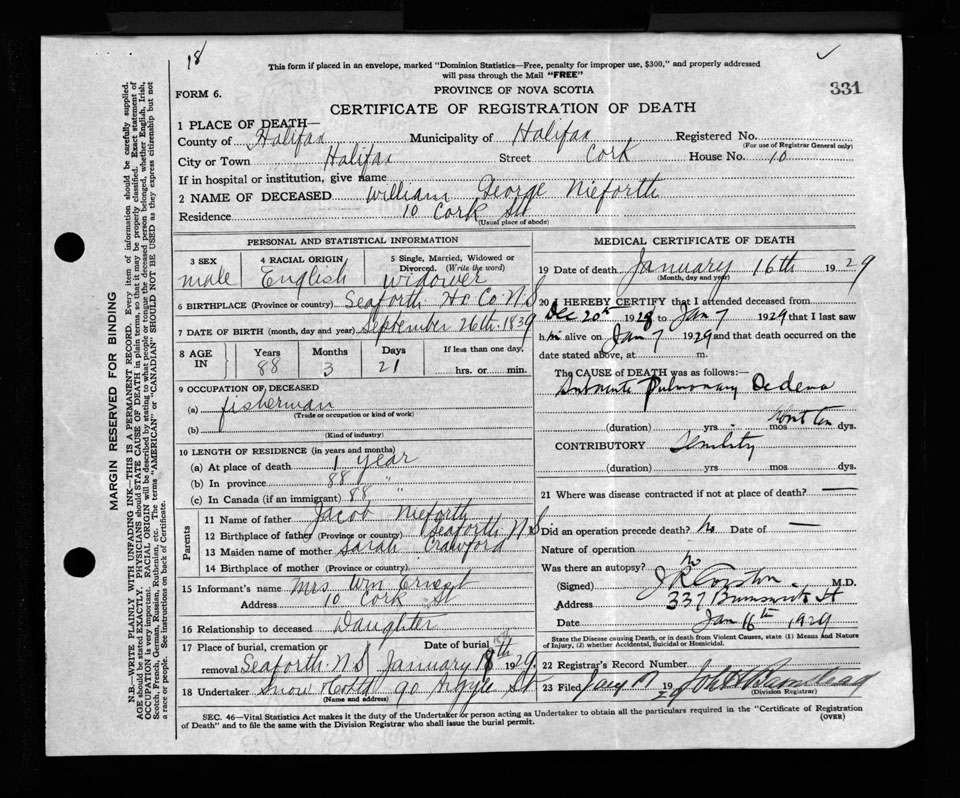 18 ✓
This form if placed in an envelope, marked "Dominion Statistics—Free, penalty for improper use, $300," and properly addressed
will pass through the Mail "FREE"
331
FORM 6.
PROVINCE OF NOVA SCOTIA
CERTIFICATE OF REGISTRATION OF DEATH
1 PLACE OF DEATH—
County of Halifax Municipality of Halifax Registered No.
(For use of Registrar General only)
City or Town Halifax Street Cork House No. 10
If in hospital or institution, give name
2 NAME OF DECEASED William George Nieforth
Residence 10 Cork St
(Usual place of abode)
PERSONAL AND STATISTICAL INFORMATION
3 SEX 4 RACIAL ORIGIN 5 Single, Married, Widowed or
Divorced. (Write the word)
male English widower
6 BIRTHPLACE (Province or country) Seaforth Hx Co N.S
7 DATE OF BIRTH (month, day and year) September 26th. 1839
8 AGE IN Years Months Days If less than one day,
88 3 21 hrs. or min.
9 OCCUPATION OF DECEASED
(a) fisherman
(Trade or occupation or kind of work)
(b)
(Kind of industry)
10 LENGTH OF RESIDENCE (in years and months)
(a) At place of death 1 year
(b) In province 88 "
(c) In Canada (if an immigrant) 88 "
Parents
11 Name of father Jacob Nieforth
12 Birthplace of father (Province or country) Seaforth N.S
13 Maiden name of mother Sarah Crawford
14 Birthplace of mother (Province or country)
15 Informant's name Mrs Wm Ernest
Address 10 Cork St
16 Relationship to deceased Daughter
17 Place of burial, cremation or Date of burial
removal Seaforth N.S January 18th 1929.
18 Undertaker Snow & Co Ltd 90 Argyle St
(Name and address)
MEDICAL CERTIFICATE OF DEATH
19 Date of death January 16th 1929
(Month, day and year)
20 I HEREBY CERTIFY that I attended deceased from
Dec 20th 1928 to Jan 7 1929 that I last saw
him alive on Jan 7 1929 and that death occurred on the
date stated above, at m.
The CAUSE of DEATH was as follows:—
Pulmonary Oedema
(duration) yrs. mos. ten dys.
CONTRIBUTORY Senility
(duration) yrs mos dys.
21 Where was disease contracted if not at place of death? —
Did an operation precede death? No Date of —
Nature of operation
Was there an autopsy? no
(Signed) J R Corston M.D.
Address 337 Brunswick St
Date Jan 16th 1929
State the Disease causing Death, or in death from Violent Causes, state (1) Means and Nature
of Injury, (2) whether Accidental, Suicidal or Homicidal.
22 Registrar's Record Number
23 Filed Jany 17 1929
(Division Registrar)
SEC. 46—Vital Statistics Act makes it the duty of the Undertaker or person acting as Undertaker to obtain all the particulars required in the "Certificate of Registration
of Death" and to file the same with the Division Registrar who shall issue the burial permit. (OVER)
MARGIN RESERVED FOR BINDING
N.B.—WRITE PLAINLY WITH UNFADING INK—THIS IS A PERMANENT RECORD. Every item of information should be carefully supplied.
AGE should be stated EXACTLY. PHYSICIANS should STATE CAUSE OF DEATH in plain terms, so that it may be properly classified. Exact statement of
OCCUPATION is very important. RACIAL ORIGIN will be described by stating to what people or race the deceased person belonged, whether English, Irish,
Scotch, French, German, Russian, Ruthenian, etc. The terms "AMERICAN" or "CANADIAN" SHOULD NOT BE USED as they express citizenship but not
a race or people. See instructions on back of Certificate.